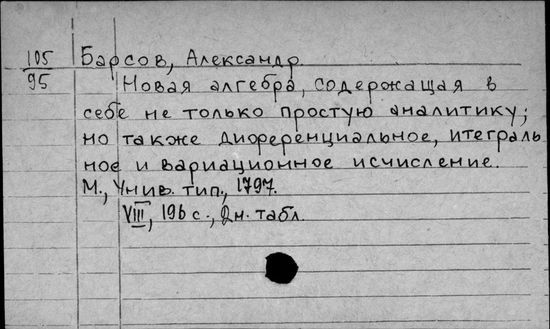 105 Барсов, Александр.
95 Новая алгебра, содержащая в
себе не только простую аналитику;
но также диференциальное, итеграль
ное и вариационное исчисление.
М., Унив. тип., 1797.
VIII, 196 с., 2н. табл.